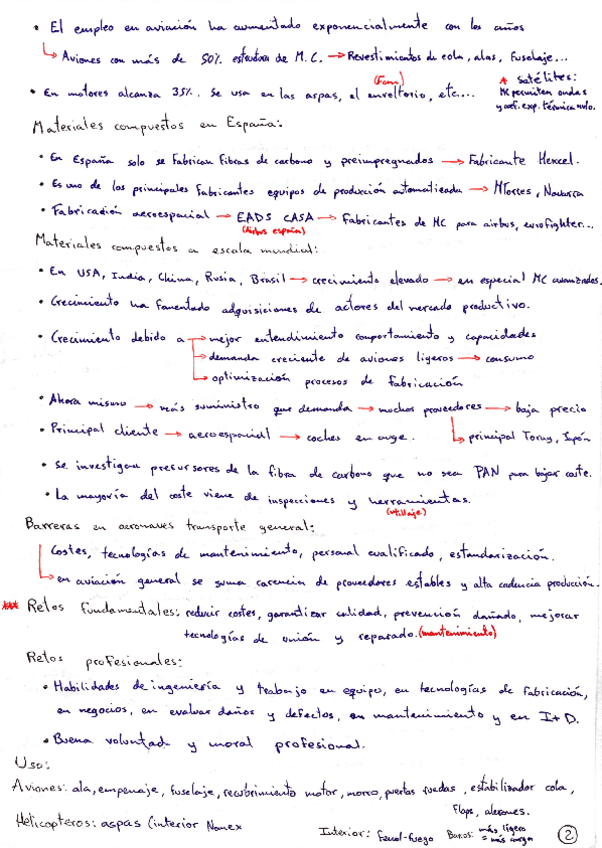 • El empleo en aviación ha aumentado exponencialmente con los años
↳ Aviones con más de 50% estructura de M.C. → Revestimientos de cola, alas, fuselaje...
• En motores alcanza 35%. Se usa en las aspas, el envoltorio, etc.... (Fan)
* Satélites: MC permiten ondas y coef. exp. térmica nulo.
Materiales compuestos en España:
• En España solo se fabrican fibras de carbono y preimpregnados → Fabricante Hexcel.
• Es uno de los principales fabricantes equipos de producción automatizada → MTorres, Navarra
• Fabricación aeroespacial → EADS CASA → Fabricantes de MC para airbus, eurofighter...
(Airbus español)
Materiales compuestos a escala mundial:
• En USA, India, China, Rusia, Brasil → crecimiento elevado → en especial MC avanzados.
• Crecimiento ha fomentado adquisiciones de actores del mercado productivo.
• Crecimiento debido a → mejor entendimiento comportamiento y capacidades
→ demanda creciente de aviones ligeros → consumo
→ optimización procesos de fabricación
• Ahora mismo → más suministro que demanda → muchos proveedores → baja precio
• Principal cliente → aeroespacial → coches en auge. ↳ principal Toray, Japón
• Se investigan precursores de la fibra de carbono que no sea PAN para bajar coste.
• La mayoría del coste viene de inspecciones y herramientas.
(utillaje)
Barreras en aeronaves transporte general:
Costes, tecnologías de mantenimiento, personal cualificado, estandarización.
↳ en aviación general se suma carencia de proveedores estables y alta cadencia producción.
*** Retos fundamentales: reducir costes, garantizar calidad, prevención dañado, mejorar
tecnologías de unión y reparado. (mantenimiento)
Retos profesionales:
• Habilidades de ingeniería y trabajo en equipo, en tecnologías de fabricación,
en negocios, en evaluar daños y defectos, en mantenimiento y en I+D.
• Buena voluntad y moral profesional.
Uso:
Aviones: ala, empenaje, fuselaje, recubrimiento motor, morro, puertas ruedas, estabilizador cola,
flaps, alerones.
Helicopteros: aspas (interior Nomex
Interior: Fenol-fuego
más ligero = más carga
2